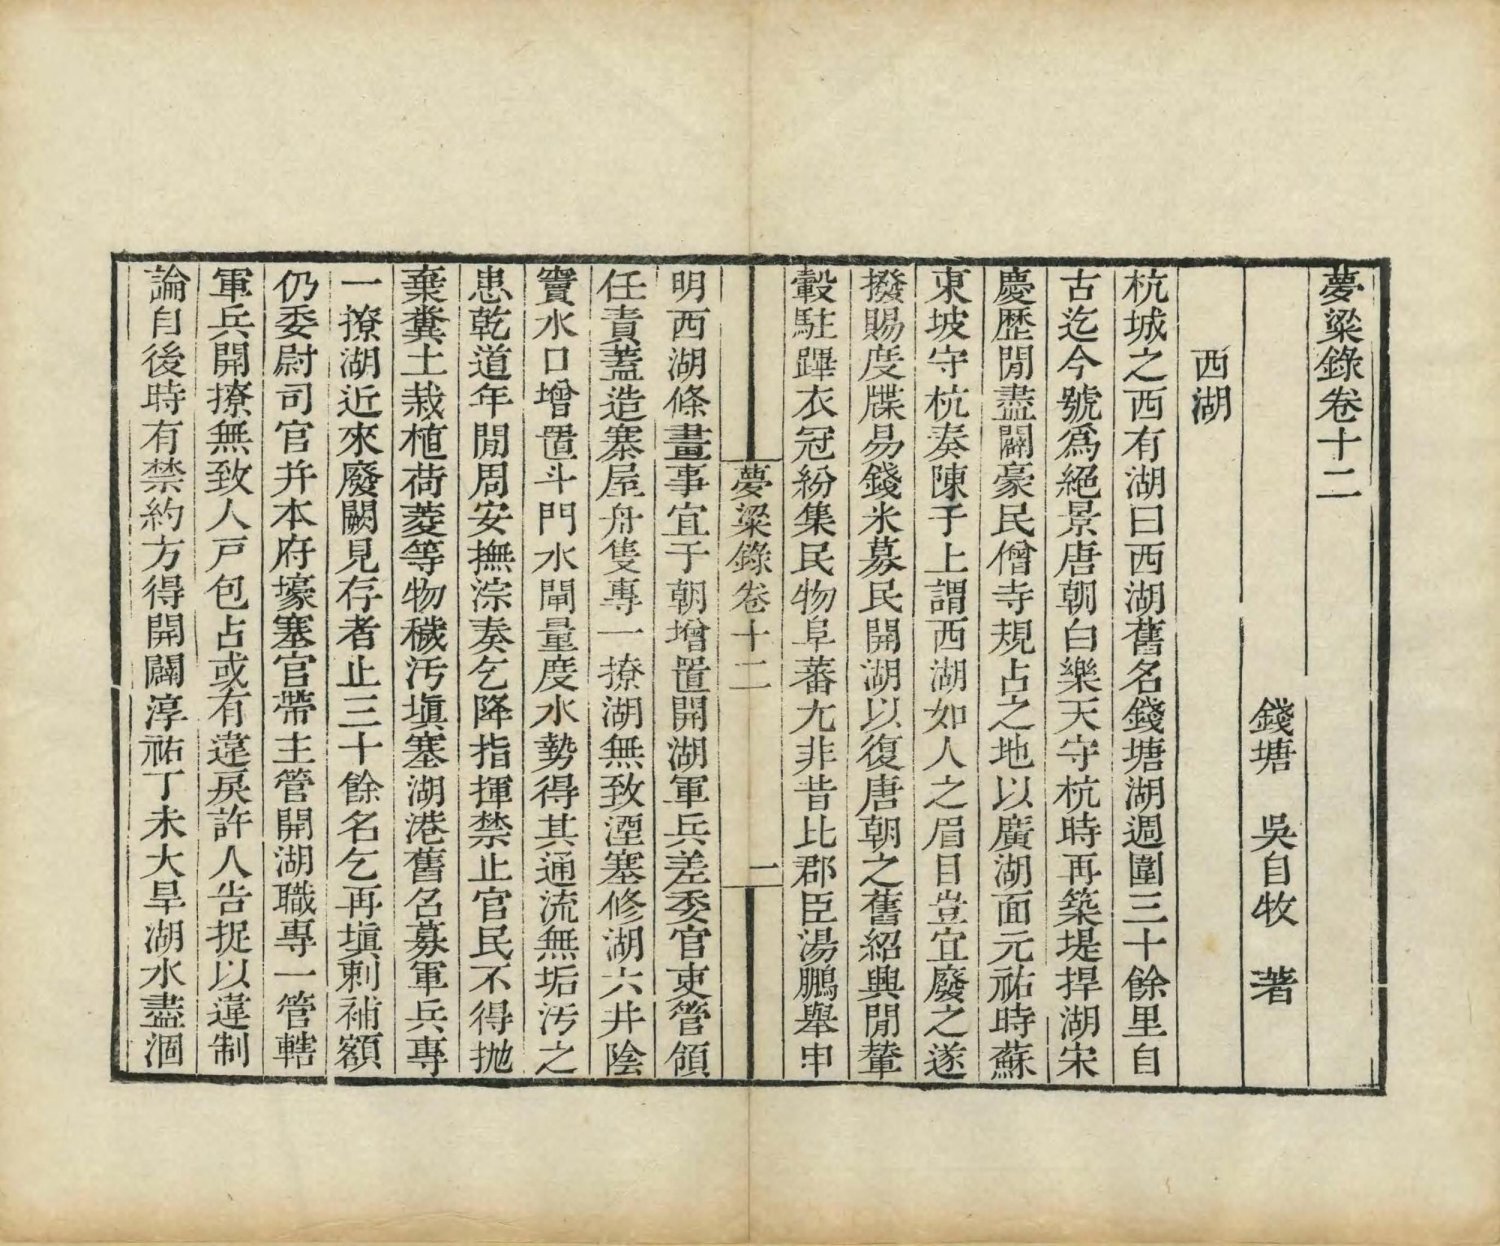 夢粱錄卷十二
錢塘 吳自牧 著
西湖
杭城之西有湖曰西湖舊名錢塘湖週圍三十餘里自
古迄今號爲絕景唐朝白樂天守杭時再築堤捍湖宋
慶歷閒盡闢豪民僧寺規占之地以廣湖面元祐時蘇
東坡守杭奏陳于上謂西湖如人之眉目豈宜廢之遂
撥賜度牒易錢米募民開湖以復唐朝之舊紹興閒輦
轂駐蹕衣冠紛集民物阜蕃尤非昔比郡臣湯鵬舉申
夢粱錄卷十二 一
明西湖條畫事宜于朝增置開湖軍兵差委官吏管領
任責蓋造寨屋舟隻專一撩湖無致湮塞修湖六井陰
竇水口增置斗門水閘量度水勢得其通流無垢汚之
患乾道年閒周安撫淙奏乞降指揮禁止官民不得抛
棄糞土栽植荷菱等物穢汚塡塞湖港舊名募軍兵專
一撩湖近來廢闕見存者止三十餘名乞再塡刺補額
仍委尉司官并本府壕塞官帶主管開湖職專一管轄
軍兵開撩無致人戸包占或有違戾許人告捉以違制
論自後時有禁約方得開闢淳祐丁未大旱湖水盡涸